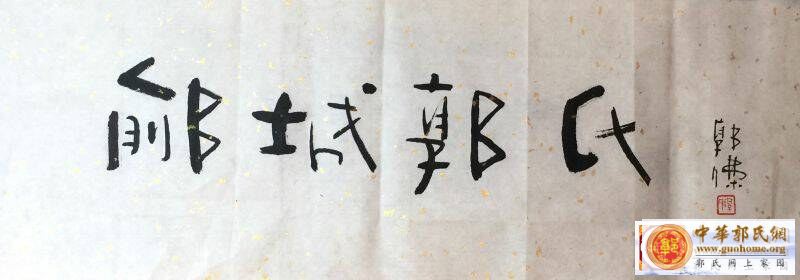 鄃城郭氏
郭傑
中華郭氏網
www.guohome.org
郭氏网上家园